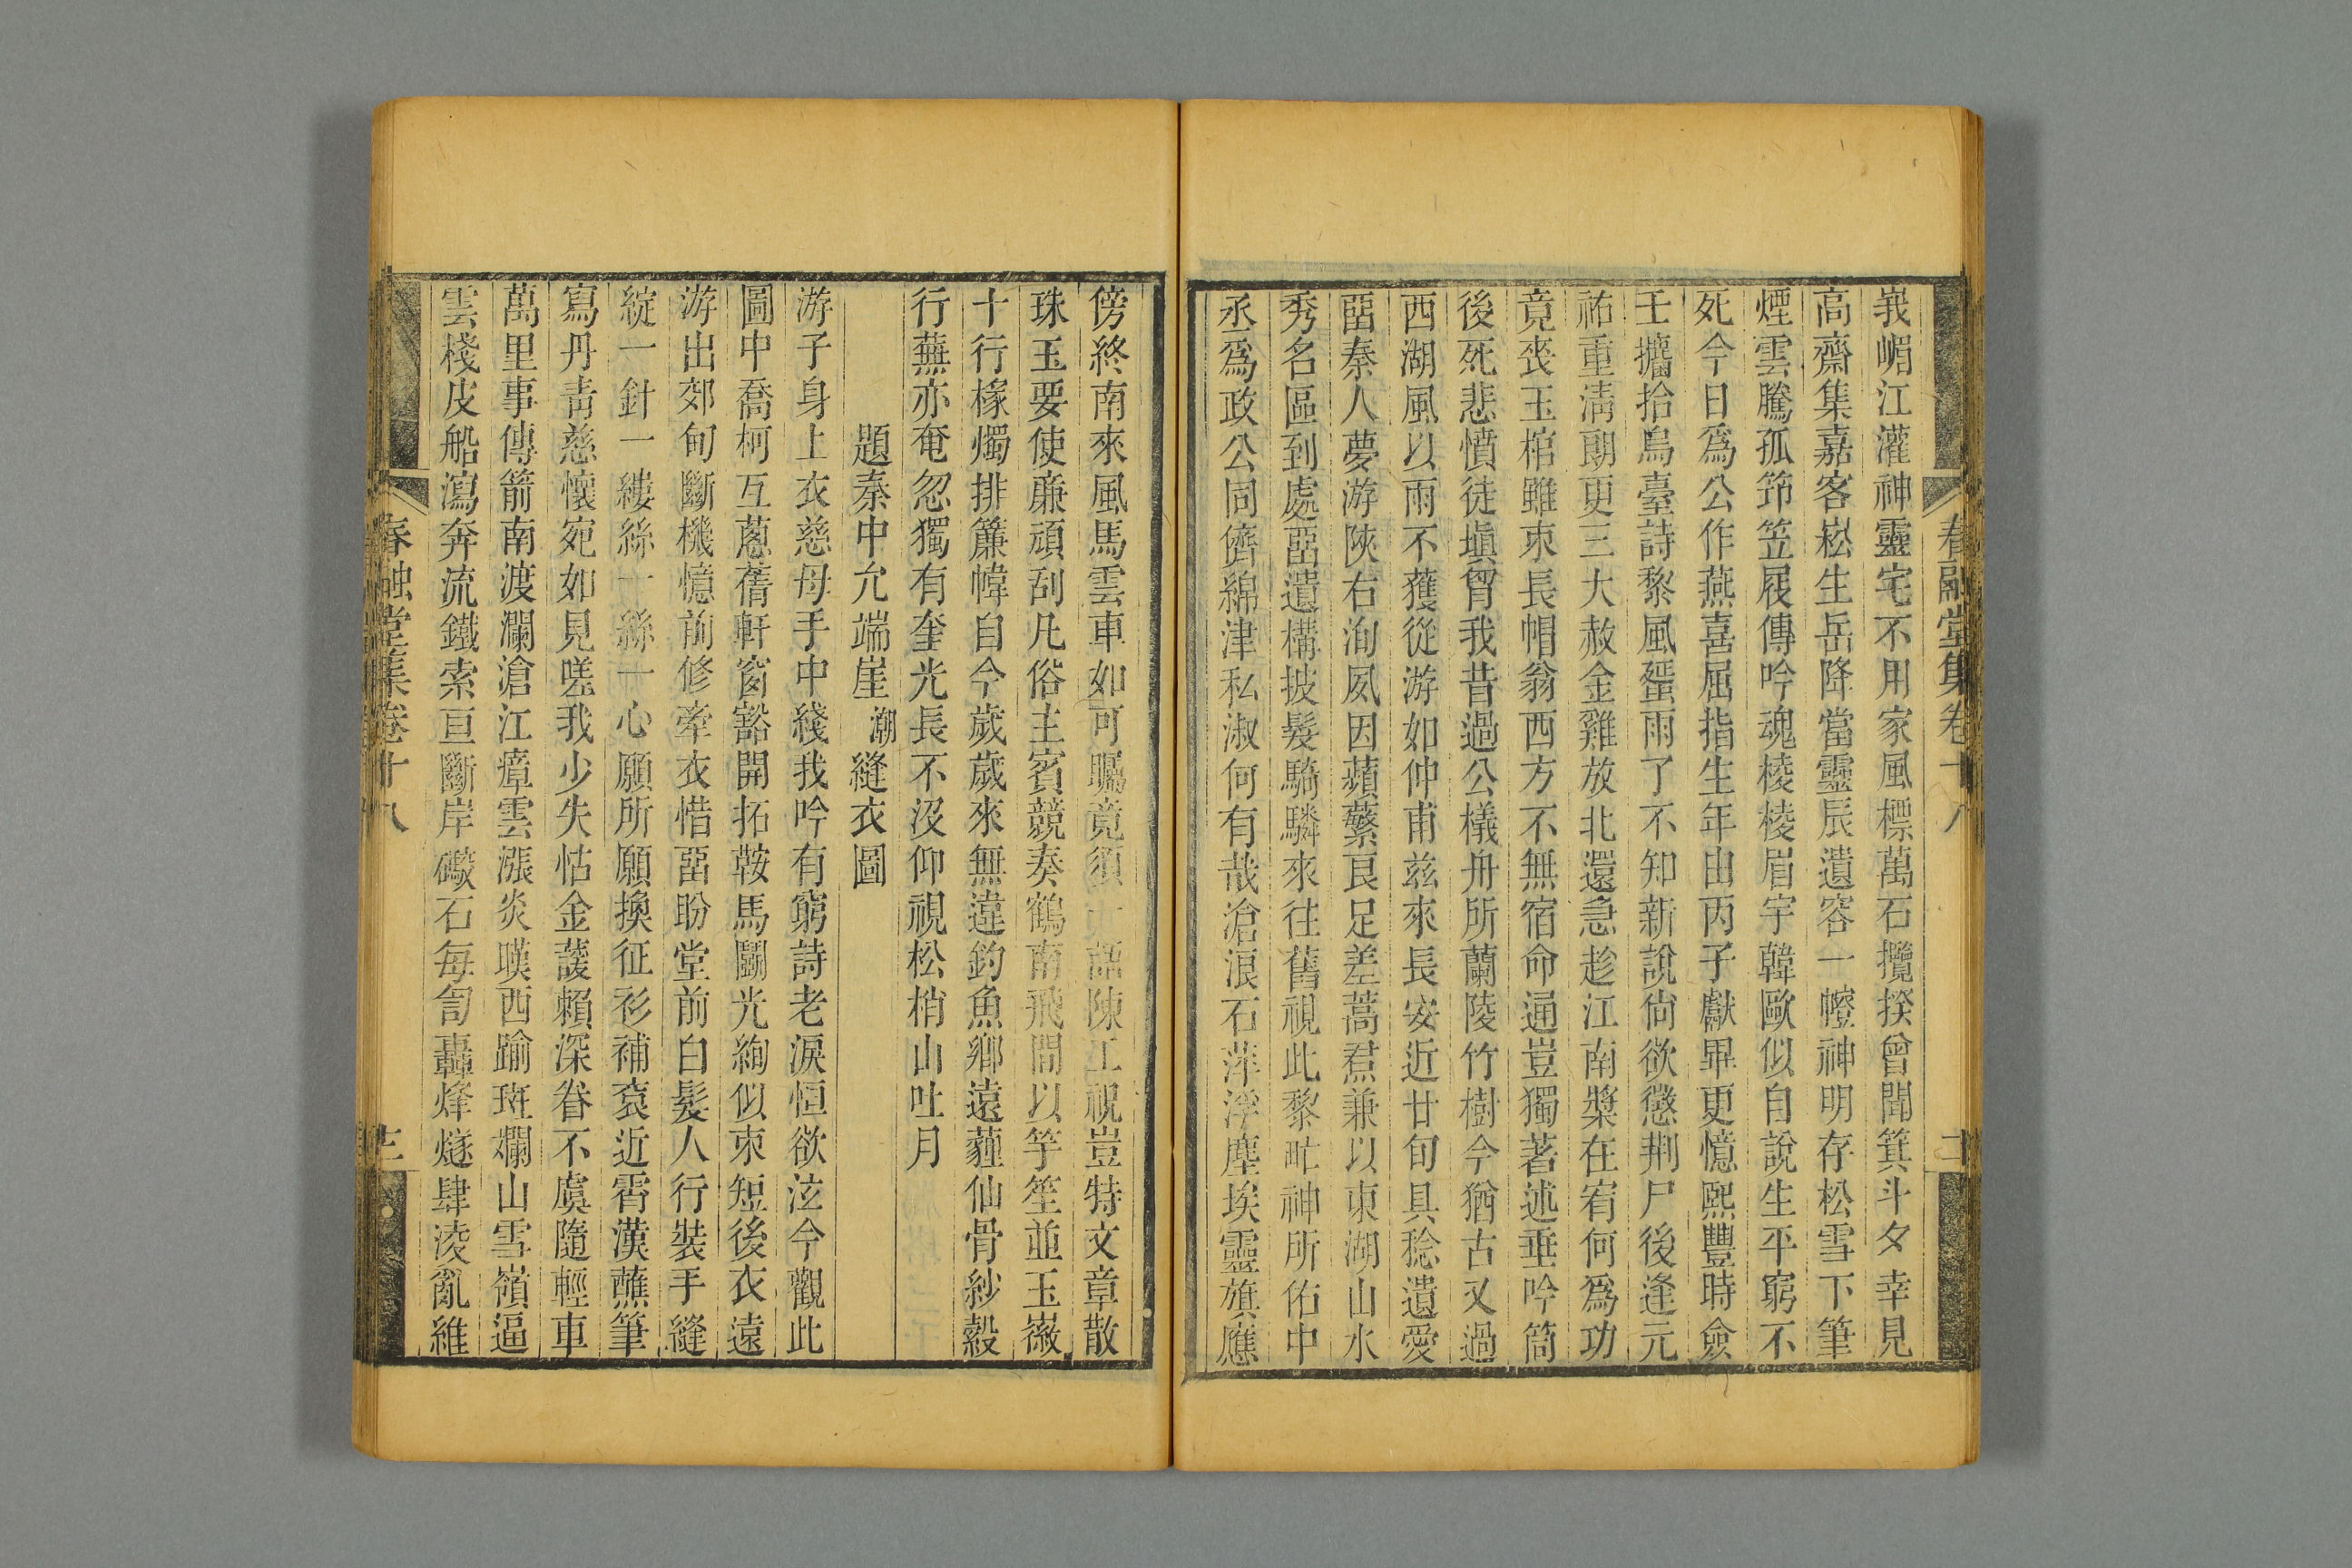 春融堂集卷十八
峩嵋江灌神靈宅不用家風標萬石攬揆曾聞箕斗夕幸見
高齋集嘉客崧生岳降當靈辰遺容一幰神明存松雪下筆
煙雲騰孤笻笠屐傳吟魂棱棱眉宇韓歐似自說生平窮不
死今日爲公作燕喜屈指生年由丙子獻鼂更憶熙豐時僉
壬攟拾烏臺詩黎風蜑雨了不知新說尙欲懲荆尸後逢元
祐重淸朗更三大赦金雞放北還急趁江南槳在宥何爲功
竟喪玉棺雖朿長帽翁西方不無宿命通豈獨著述垂吟筒
後死悲憤徒塡胷我昔過公檥舟所蘭陵竹樹今猶古又過
西湖風以雨不獲從游如仲甫兹來長安近廿旬具稔遺愛
畱秦人夢游陜右洵夙因蘋蘩艮足差蒿焄兼以東湖山水
秀名區到處畱遺構披髮騎驎來往舊視此黎甿神所佑中
丞爲政公同儕綿津私淑何有哉滄浪石萍浮塵埃靈旗應
傍終南來風馬雲車如可矚竟須一語陳工祝豈特文章散
珠玉要使亷頑刮凡俗主賓競奏鶴南飛間以竽笙並玉嶶
十行椽燭排簾幃自今歲歲來無違釣魚鄉遠薶仙骨紗縠
行蕪亦奄忽獨有奎光長不沒仰視松梢山吐月
題秦中允端崖潮縫衣圖
游子身上衣慈母手中綫我吟有窮詩老淚恒欲泫今觀此
圖中喬柯互蔥蒨軒窗豁開拓鞍馬鬭光絢似朿短後衣遠
游出郊甸斷機憶前修牽衣惜畱盼堂前白髮人行裝手縫
綻一針一縷絲一絲一心願所願換征衫補袞近霄漢蘸筆
寫丹靑慈懷宛如見嗟我少失怙金護賴深眷不虞隨輕車
萬里事傳箭南渡瀾滄江瘴雲漲炎暵西踰斑斕山雪嶺逼
雲棧皮船瀉奔流鐵索亘斷岸礮石每訇轟烽燧肆淩亂維
春融堂集卷十八